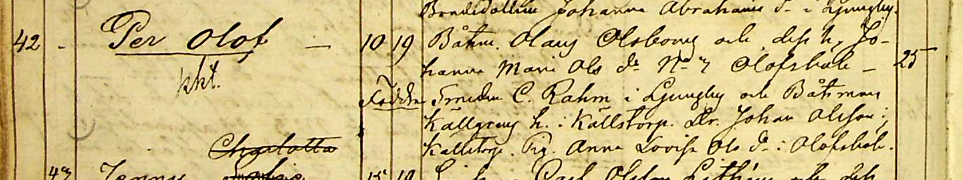 Bondedottern Johanna Abrahams dr i Ljungby.
42 - Per Olof - 10 19 Båtsm. Olaus Olsborg och dess h. Jo-
hanna Maria Ols dr No 7 Olofsbule - 25
kht.
Faddr Smeden C. Rahm i Ljungby och Båtsman
Källgrens h. i Källstorp. Dr. Johan Olsson i
Källstorp. Pig. Anna Lovisa Ols dr i Olofsbule.
Charlotta
43 Jenny 15 19 Carl och dess